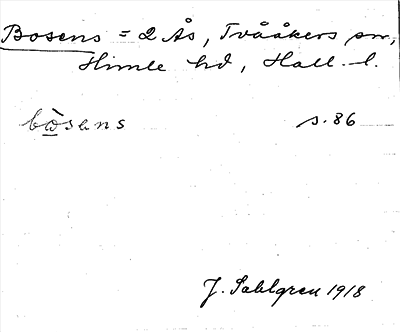 Bosens = 2 Ås, Tvååkers sn,
Himle hd, Hall. l.
bὼsens s. 86
J. Sahlgren 1918